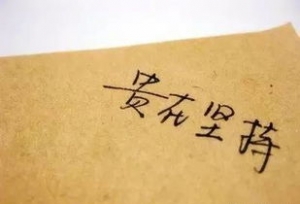 贵在坚持